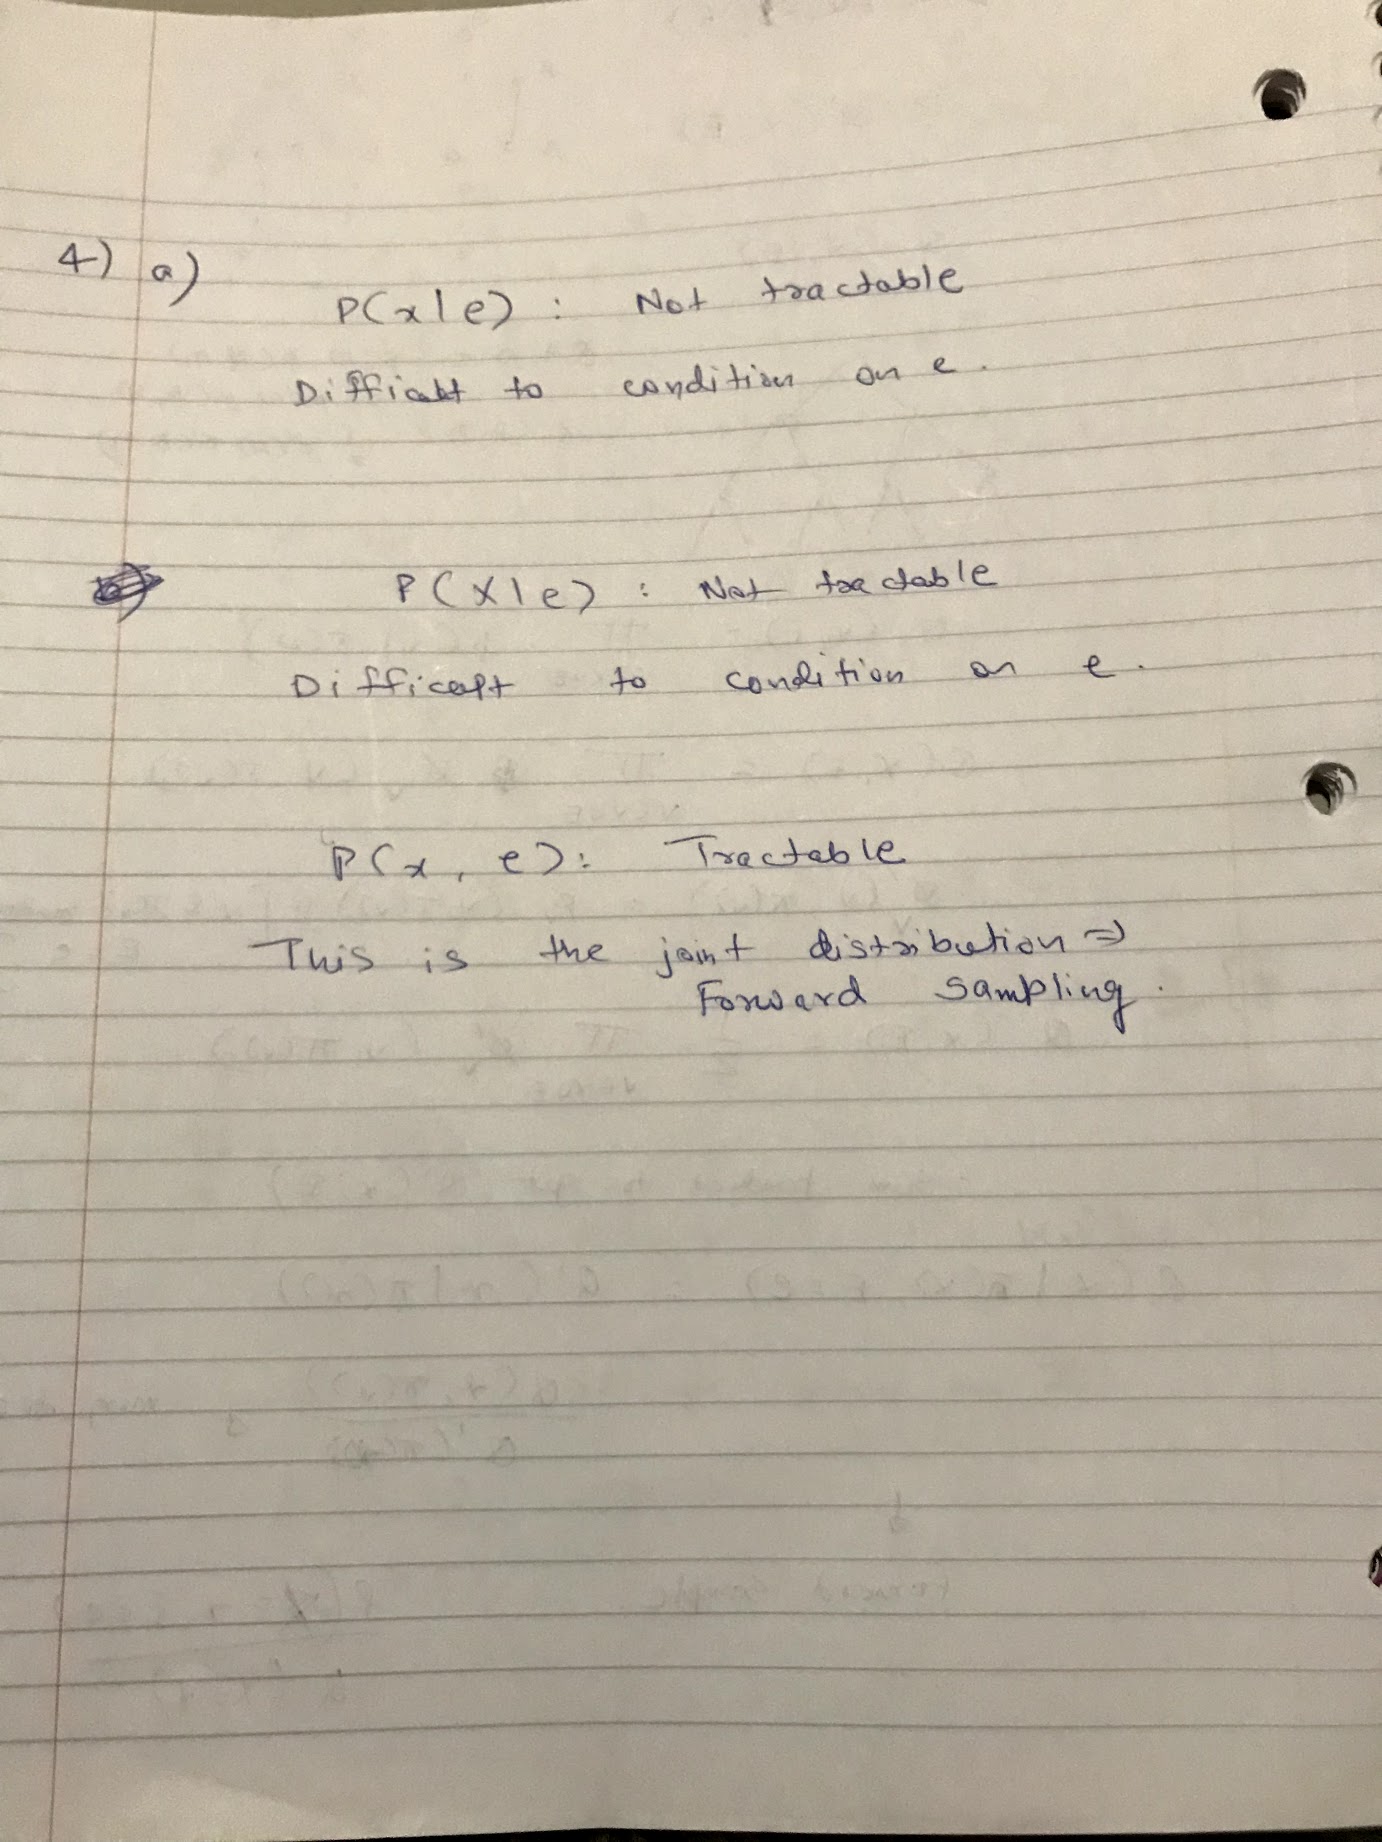 4) a)
P(x|e) : Not tractable
Difficult to condition on e.
P(X|e) : Not tractable
Difficult to condition on e.
P(x, e): Tractable
This is the joint distribution ⇒
Forward sampling.